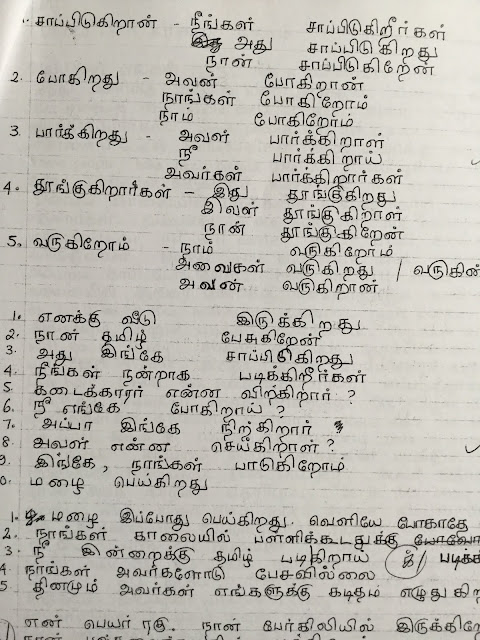 1. சாப்பிடுகிறான் - நீங்கள் சாப்பிடுகிறீர்கள்
அது சாப்பிடுகிறது
நான் சாப்பிடுகிறேன்
2. போகிறது - அவன் போகிறான்
நாங்கள் போகிறோம்
நாம் போகிறோம்
3. பார்க்கிறது - அவள் பார்க்கிறாள்
நீ பார்க்கிறாய்
அவர்கள் பார்க்கிறார்கள்
4. தூங்குகிறார்கள் - இது தூங்குகிறது
இவள் தூங்குகிறாள்
நான் தூங்குகிறேன்
5. வருகிறோம் - நாம் வருகிறோம்
அவைகள் வருகிறது / வருகின்
அவன் வருகிறான்
1. எனக்கு வீடு இருக்கிறது
2. நான் தமிழ் பேசுகிறேன்
3. அது இங்கே சாப்பிடுகிறது
4. நீங்கள் நன்றாக படிக்கிறீர்கள்
5 கடைக்காரர் என்ன விற்கிறார் ?
6. நீ எங்கே போகிறாய் ?
7. அப்பா இங்கே நிற்கிறார்
8. அவள் என்ன செய்கிறாள் ?
9. இங்கே, நாங்கள் பாடுகிறோம்
0. மழை பெய்கிறது
1. மழை இப்போது பெய்கிறது. வெளியே போகாதே
2. நாங்கள் காலையில் பள்ளிக்கூடதுக்கு போவோ
3. நீ இன்றைக்கு தமிழ் படிகிறாய் க் / படிக்க
4 நாங்கள் அவர்களோடு பேசவில்லை
5 தினமும் அவர்கள் எங்களுக்கு கடிதம் எழுதுகிற
என் பெயர் ரகு. நான் பேர்கிலியில் இருக்கிறே